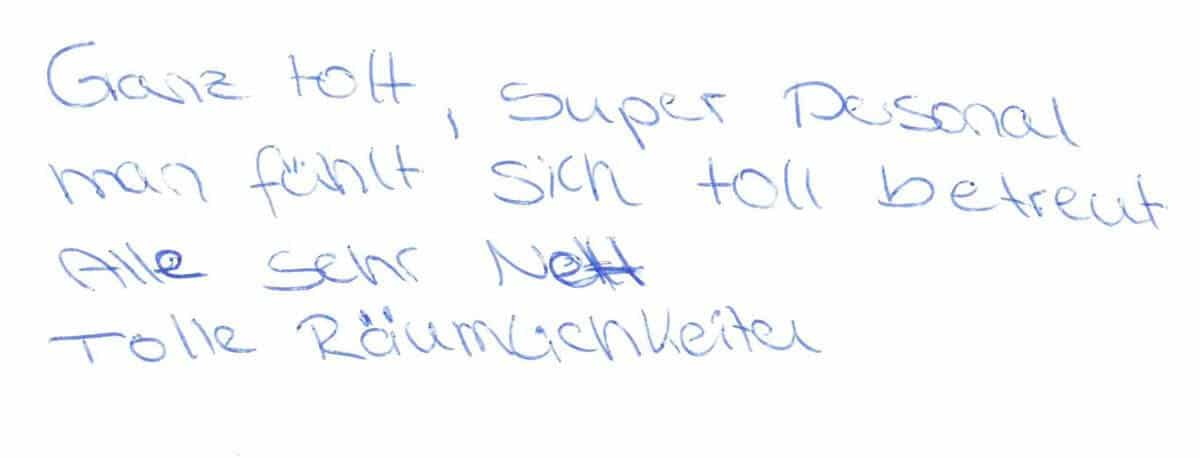 Ganz toll, super Personal
man fühlt sich toll betreut
Alle sehr Nett
Tolle Räumlichkeiten